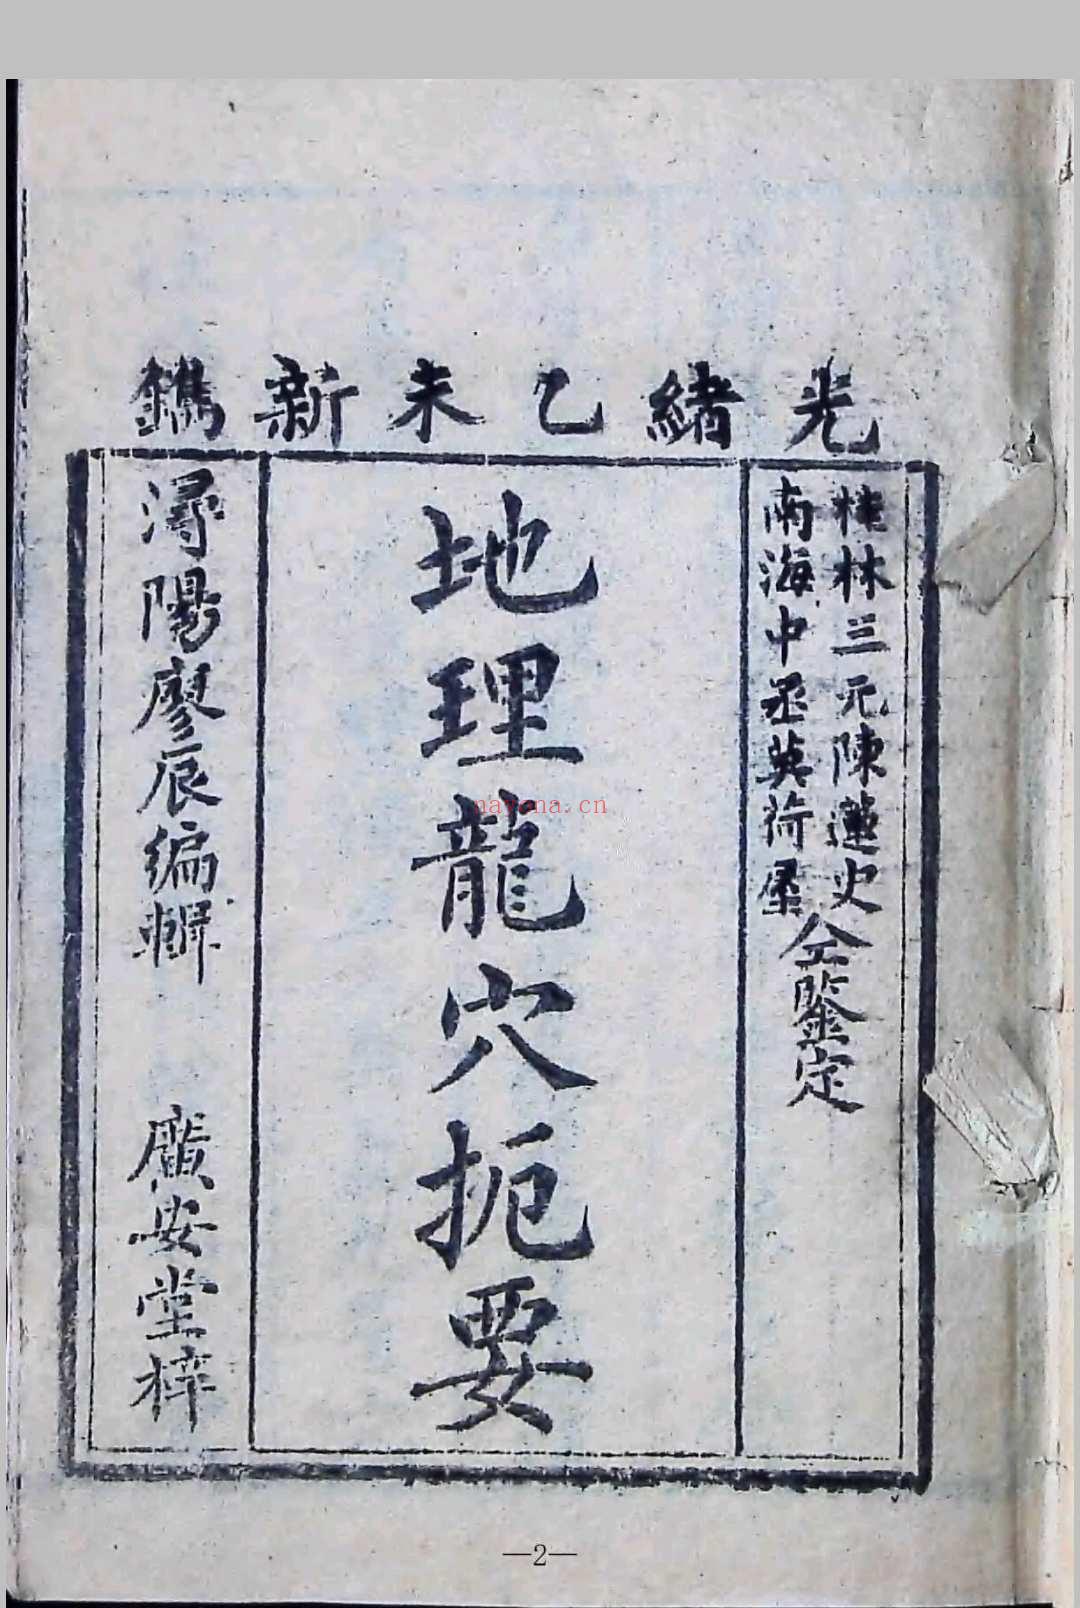 光緒乙未新鐫
桂林三元陳蓮史
南海中丞葉荷屋
仝鑒定
地理龍穴扼要
潯陽廖辰編輯
廣安堂梓
nayona.cn
—2—